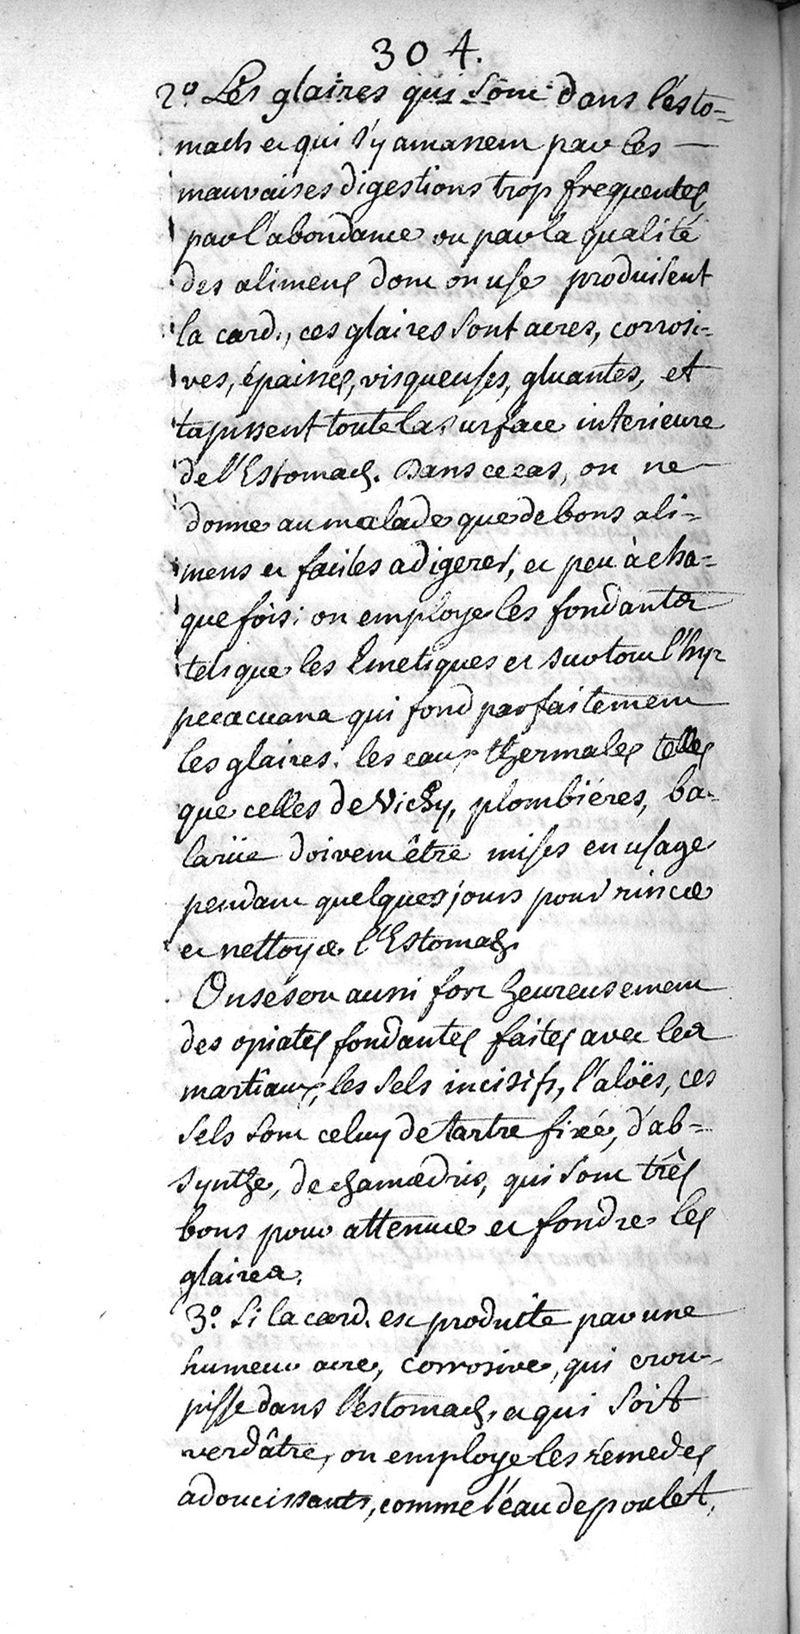 304.
2.° Les glaires qui sont dans l'esto=
mach et qui s'y amassent par les —
mauvaises digestions trop frequentes
par l'abondance ou par la qualité
des alimens dont on use produisent
la card., ces glaires sont acres, corrosi=
ves, épaisses, visqueuses, gluantes, et
tapissent toute la surface interieure
de l'Estomach. Dans ce cas, on ne
donne au malade que de bons ali=
mens et faciles a digerer, et peu à cha=
que fois: on employe les fondants
tels que les Emetiques et surtout l'hyp
pecacuana qui fond parfaitement
les glaires. les eaux thermales telles
que celles de Vichy, plombiéres, ba-
laruë doivent être mises en usage
pendant quelques jours pour rincer
et nettoyer l'Estomach.
On se sert aussi fort heureusement
des opiates fondantes faites avec les
martiaux, les sels incisifs, l'aloës, ces
sels sont celuy de tartre fixé, d'ab=
synthe, de chamœdris, qui sont trés
bons pour attenuer et fondre les
glaires.
3.° Si la card. est produite par une
humeur acre, corrosive, qui crou-
pisse dans l'estomach, et qui soit
verdâtre, on employe les remedes
adoucissants, comme l'eau de poulet,